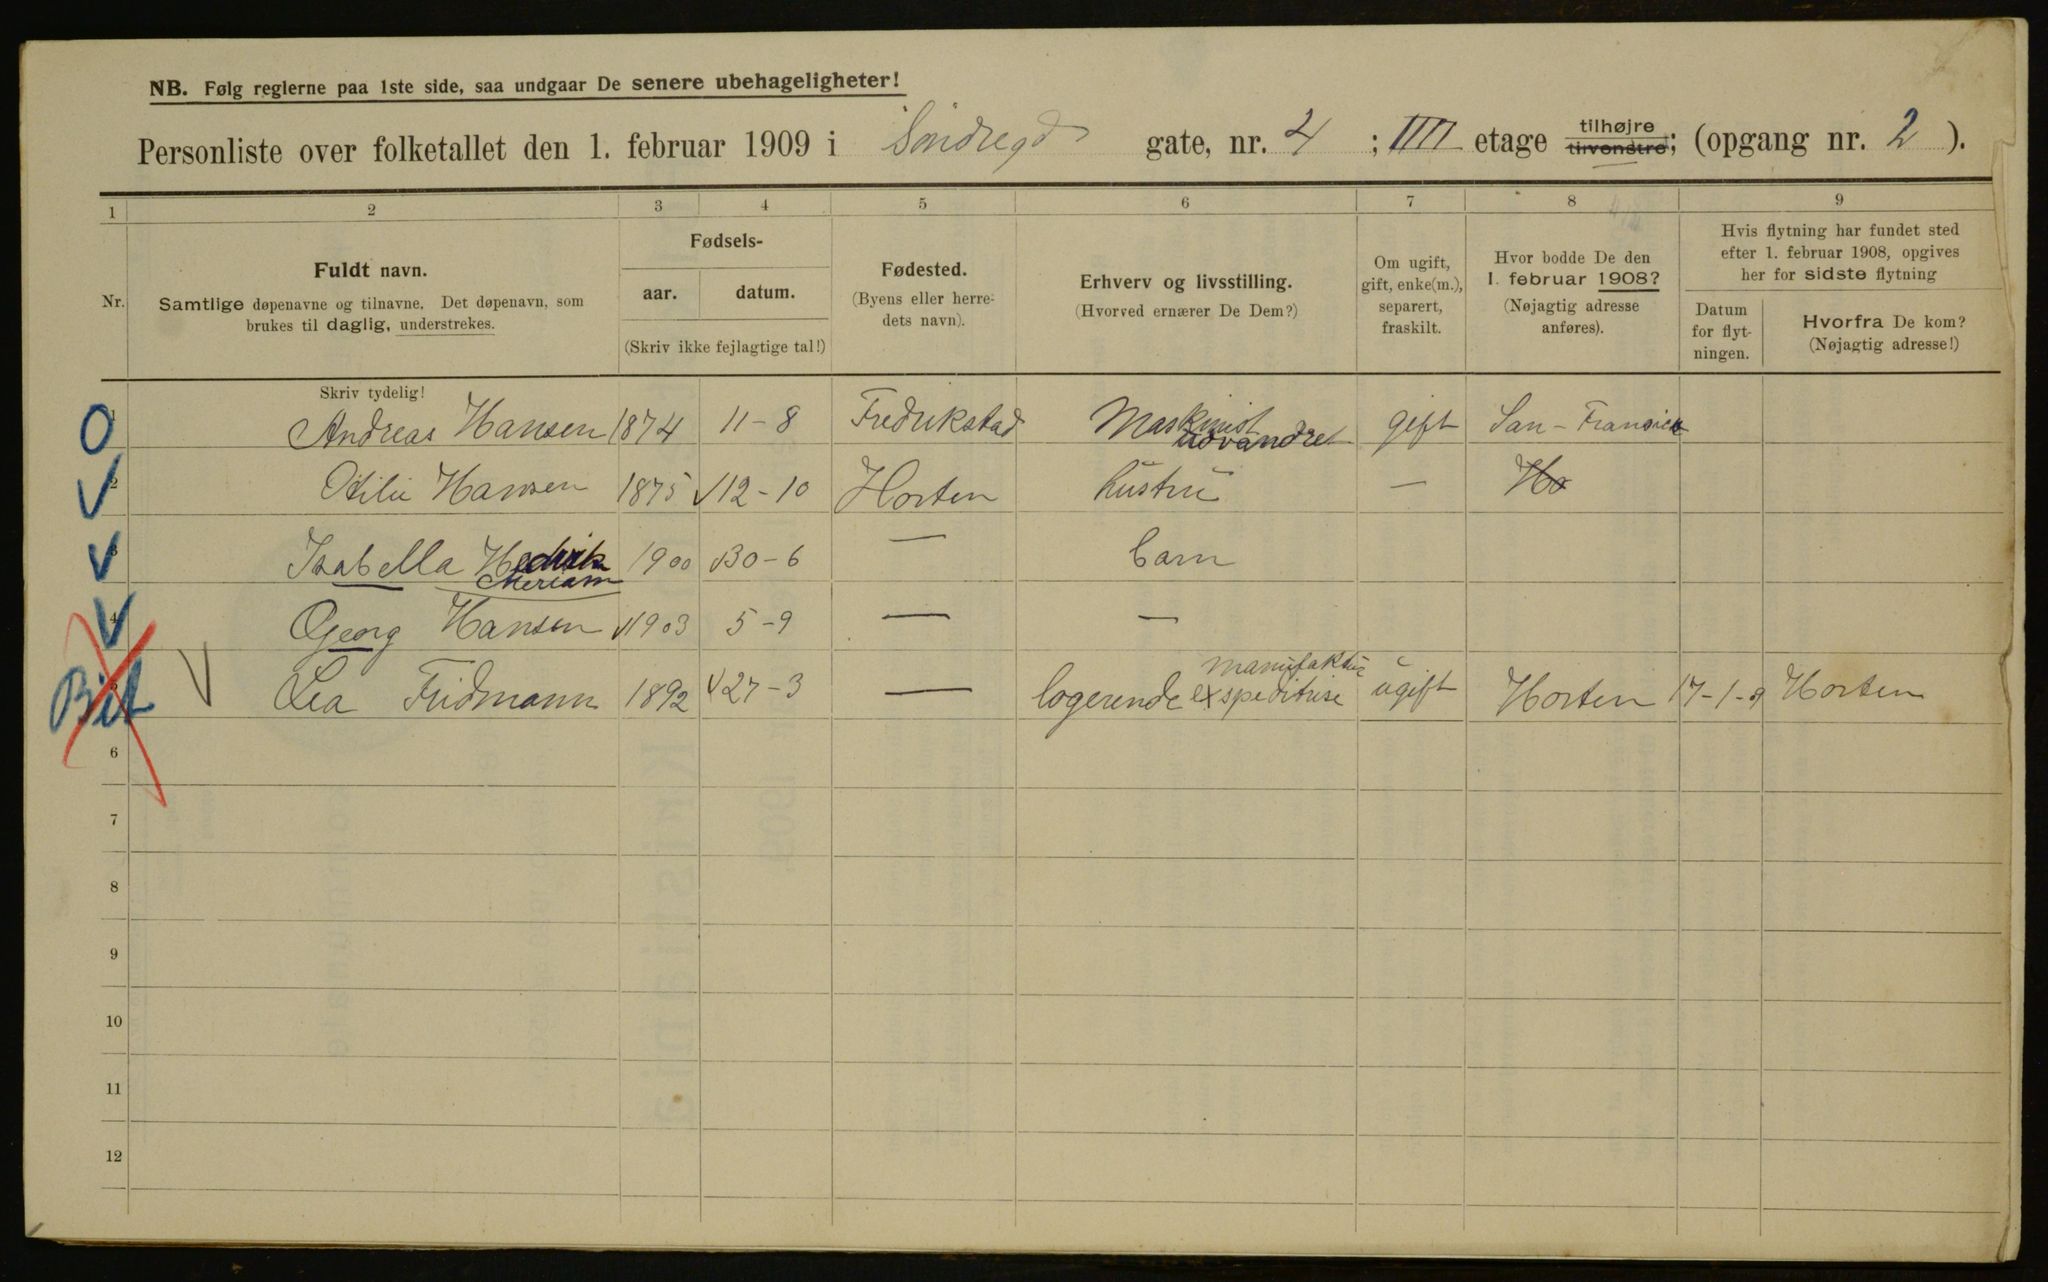 NB. Følg reglerne paa 1ste side, saa undgaar De senere ubehageligheter!
Personliste over folketallet den 1. februar 1909 i Söndregd gate, nr. 4 ; IIII etage tilhøjre tilvenstre; (opgang nr. 2 ).
1 2 3 4 5 6 7 8 9
Nr.
Fuldt navn.
Samtlige døpenavne og tilnavne. Det døpenavn, som
brukes til daglig, understrekes.
Fødsels-
aar. datum.
(Skriv ikke fejlagtige tal!)
Fødested.
(Byens eller herre-
dets navn).
Erhverv og livsstilling.
(Hvorved ernærer De Dem?)
Om ugift,
gift, enke(m.),
separert,
fraskilt.
Hvor bodde De den
1. februar 1908?
(Nøjagtig adresse
anføres).
Hvis flytning har fundet sted
efter 1. februar 1908, opgives
her for sidste flytning
Datum
for flyt-
ningen.
Hvorfra De kom?
(Nøjagtig adresse!)
Skriv tydelig!
1 Andreas Hansen 1874 11-8 Fredrikstad Maskinist udvandret gift San-Fransico
2 Otilie Hansen 1875 12-10 Horten hustru — Ho
3 Isabella Hedvik Meriam 1900 30-6 — barn
4 Georg Hansen 1903 5-9 — —
Bit 5 Lea Fridmann 1892 27-3 — logerende manufaktur exspeditrise ugift Horten 17-1-9 Horten
6
7
8
9
10
11
12